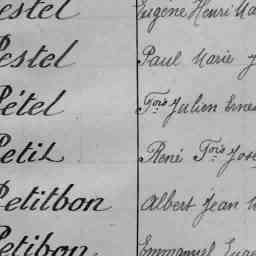 estel Eugène Henri Ma
Pestel Paul Marie J
Pétel Fois Julien Ernes
Petit René Fois Jose
Petitbon Albert Jean
Petibon Emmanuel Euge